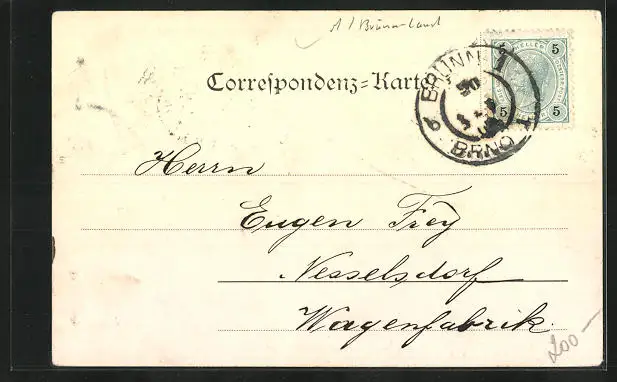 A / Brünn-Land
Correspondenz-Karte
BRÜNN 1
BRNO 1
5 HELLER 5
5 5
Herrn
Eugen Frey
Nesselsdorf
Wagenfabrik.
200 —